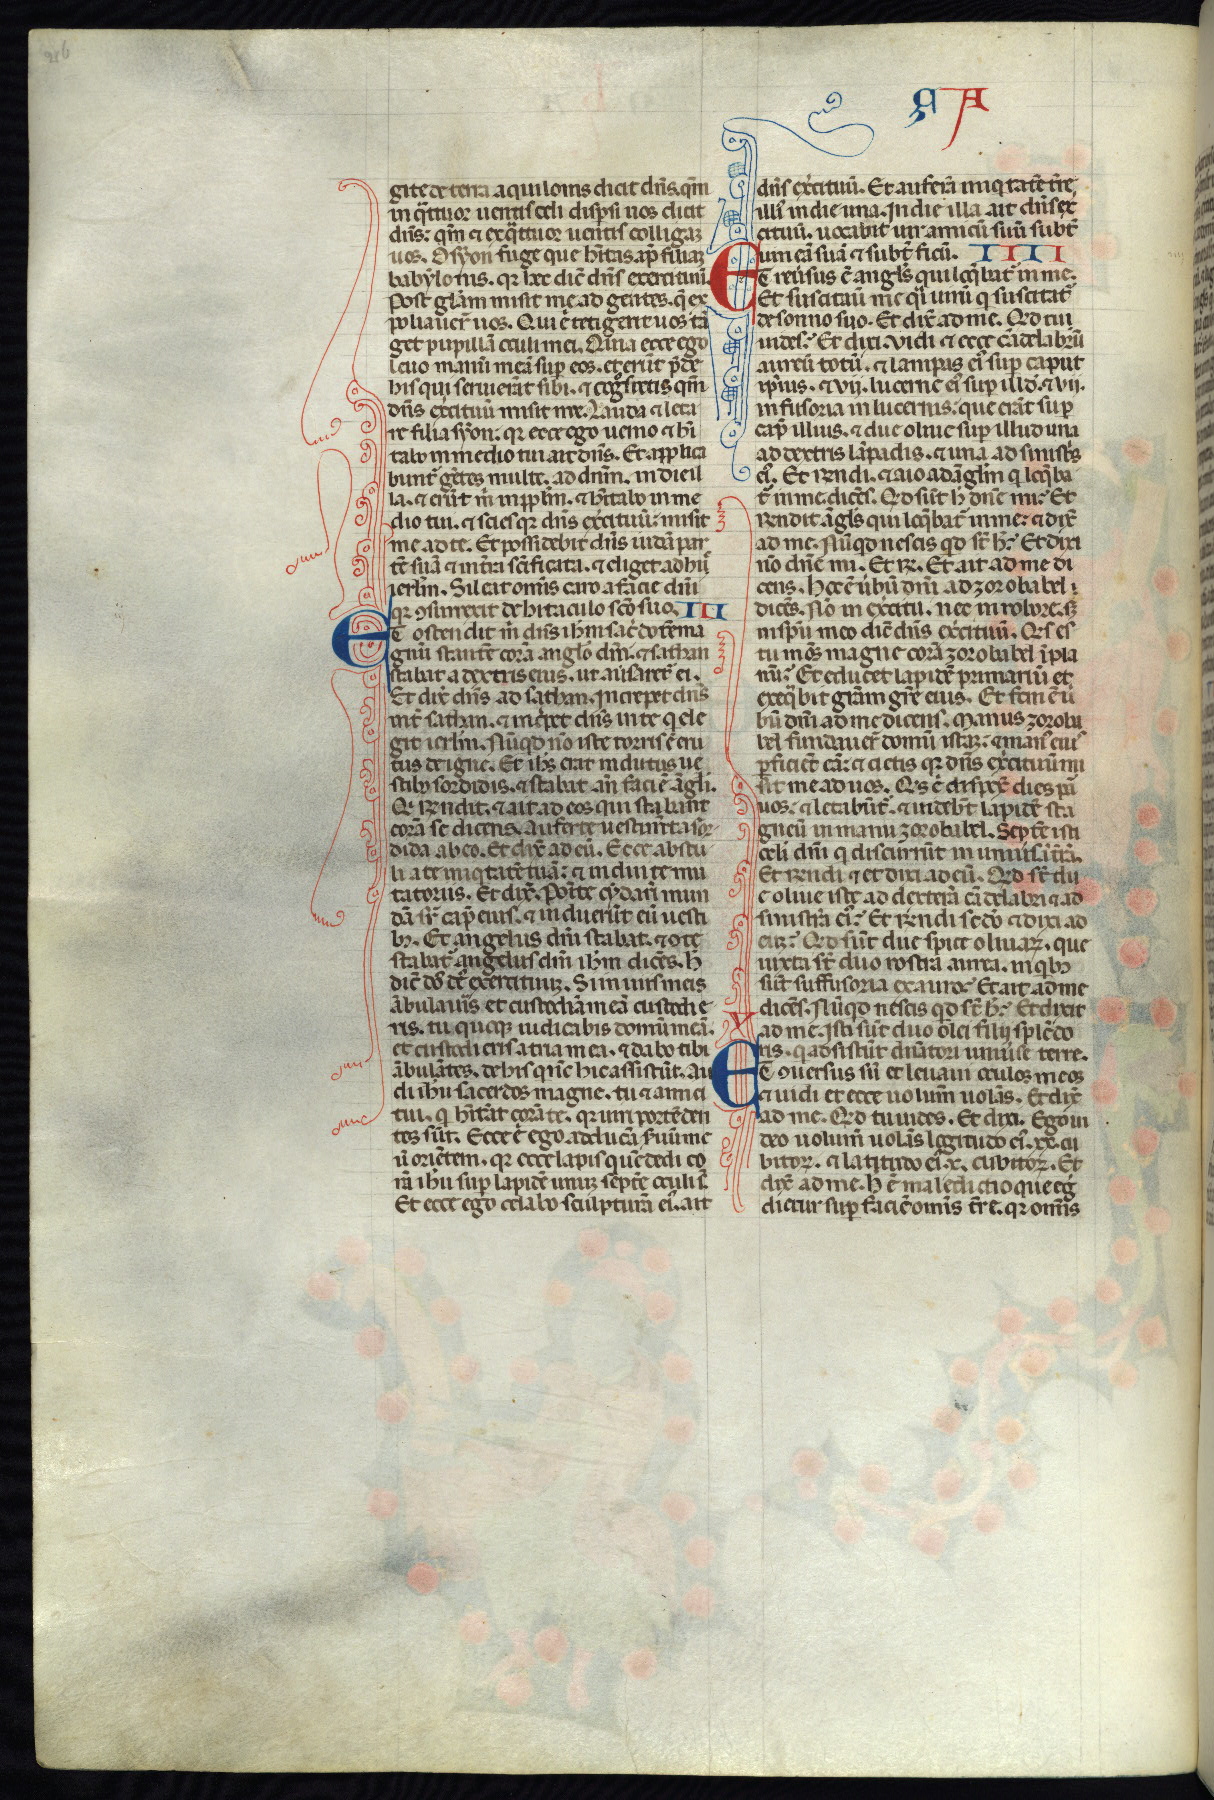 216
RA
gite de terra aquilonis dicit dñs. qm̃
in q̃ttuor uentis celi dispsi uos dicit
dñs: qm̃ ⁊ ex q̃ttuor uentis colligaz
uos. O syon fuge que h̃itas ap̃ filiaz
babylonis. qr hec dic̃ dñs exercituũ.
Post gl̃am misit me ad gentes. q̃ ex
poliauer̃ uos. Qui e᷑ tetigerit uos tã
get pupillã oculi mei. Q̃uia ecce ego
leuo manũ meã sup̃ eos. et erũt p̃de
his qui seruierãt sibi. ⁊ cog̃scetis qm̃
dñs exc̃ituũ misit me. Lauda ⁊ leta
re filia syon. qr ecce ego uenio ⁊ hi
tabo in medio tui ait dñs. Et applica
bunt̃ gẽtes multe. ad dñm. in die il
la. ⁊ erũt m̃ in pp̃lm. ⁊ h̃itabo in me
dio tui. ⁊ scies qr dñs exc̃ituũ: misit
me ad te. Et possidebit dñs iudã par
tẽ suã ĩ terra sc̃ificata. ⁊ eliget adhuc̃
ierlm̃. Sileat om̃is caro a facie dñi
qr ꝯsurrexit de hitaculo sc̃o suo. III
ET ostendit m̃ dñs ihm sac̃dotẽ ma
gnũ stantẽ corã anglo dñi. ⁊ sathan
stabat a dextris eius. ut aũsaret̃ ei.
Et dix̃ dñs ad sathan. Increpet dñs
ĩ te sathan. ⁊ incr̃pet dñs in te q̃ ele
git ierlm̃. Nũqd nõ iste torris ẽ eru
tus de igne. Et ihs erat indutus ue
stib; sordidis. ⁊ stabat an̄ faciẽ ãgli.
Qi r̃ndit. ⁊ ait ad eos qui stabant
corã se dicens. Auferte uestim̃ta sor
dida ab eo. Et dix̃ ad eũ. Ecce abstu
li a te iniq̃tatẽ tuã: ⁊ indui te mu
tatoriis. Et dix̃. Ponite cydarĩ mun
dã sr̃ cap̃ eius. ⁊ induerũt eũ uesti
b;. Et angelus dñi stabat. ⁊ ꝯte
stabat̃ angelus dñi ihm dicẽs. h̃
dic̃ dõ dr̃ exercituũ. Si in uiis meis
ãbulauĩs et custodiã meã custodie
ris. tu quoq̃; iudicabis domũ meã.
et custodieris atria mea. ⁊ dabo tibi
ãbulãtes. de his qui ñc hic assistũt. Au
di ihu sacerdos magne. tu ⁊ amici
tui. q̃ hitãt corã te. qr uiri portẽden
tes sũt. Ecce e᷑ ego adducã seruũ me
ũ oriẽtem. qr ecce lapis quẽ dedi co
rã ihu sup̃ lapidẽ unuz septẽ oculi s̃.
Et ecce ego celabo sculpturã ei᷒. ait
dñs exc̃ituũ. Et auferã iniq̃tatẽ tr̃e
illi᷒ in die una. In die illa ait dñs ex̃
cituũ. uocabit uir amicũ suũ subt̃
uineã suã ⁊ subt̃ ficũ. IIII
ET reũsus ẽ angl̃s qui loq̃bat̃ in me.
Et suscitauĩ me q̃i uirũ q̃ suscitat̃
de sonno suo. Et dix̃ ad me. Qd tu
uides? Et dixi. vidi ⁊ ecce cãdelabrũ
aureũ totũ. ⁊ lampas ei᷒ sup̃ caput
ip̃ius. ⁊ vii. lucerne ei᷒ sup̃ illd̃. ⁊ vii.
infusoria in lucernis. que erãt sup̃
cap̃ illius. ⁊ due oliue sup̃ illud una
ad dextris lãpadis. ⁊ una ad sinistr̃s
ei᷒. Et r̃endi. ⁊ aio ad ãglm̃ q̃ loq̃ba
t̃ in me dicẽs. Qd sũt h̃ dñe mi? Et
r̃endit ãgl̃s qui loq̃bat̃ in me: ⁊ dix̃
ad me. Nũqd nescis qd st̃ h̃? Et dixi
nõ dñe mi. Et r̃. Et ait ad me di
cens. Hoc ẽ ũbũ dñi ad zorobabel.
dicẽs. Nõ in exc̃itu. nec in robore. s̃;
in spũ meo dic̃ dñs exc̃ituũ. Q̃s es
tu mõs magne corã zorobabel ĩ pla
nũ? Et educet lapidẽ primariũ et
exeq̃bit gr̃am gr̃e eius. Et fc̃m ẽ ũ
bũ dñi ad me dicens. Manus zoroba
bel fundauer̃ domũ istaz: ⁊ man᷒ eius
p̃ficiẽt eã: ⁊ scietis qr dñs exc̃ituũ mi
sit me ad uos. Q̃s e᷑ dispex̃ dies pũ
uos: ⁊ letabũt̃. ⁊ uidebt̃ lapidẽ sta
gneũ in manu zorobabel. Septẽ isti
oculi dñi q̃ discurrũt in uniũs̃ã tr̃ã.
Et r̃endi ⁊ et dixi ad eũ. Qd st̃ du
e oliue iste ad dexterã cãdelabri ⁊ ad
sinistrã ei᷒? Et r̃endi sc̃do ⁊ dixi ad
eũz: Qd sũt due spice oliuaꝝ. que
iuxta st̃ duo rostra aurea. in q̃b;
sũt suffusoria ex auro? Et ait ad me
dicẽs. Nũqd nescis qd st̃ h̃? Et dixit
ad me. Isti sũt duo olei filij splẽdo
ris. q̃ adsistũt dñatori uniũse terre. V
ET ꝯuersus sũ et leuaui oculos meos
⁊ uidi et ecce uolum̃ uolãs. Et dix̃
ad me. Qd tu uides. Et dixi. Ego ui
deo uolum̃ uolãs lõgitudo ei᷒. xx. cu
bitoꝝ. ⁊ latitudo ei᷒. x. cubitoꝝ. Et
dix̃ ad me. h̃ ẽ maledictio que eg̃
dictur sup̃ faciẽ om̃is tr̃e. qr om̃is